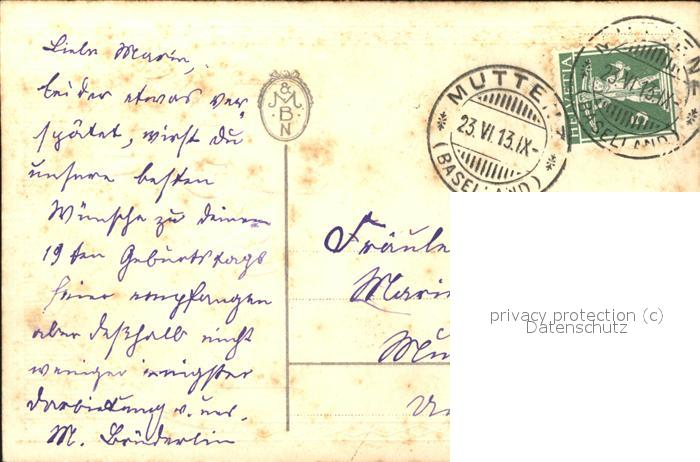 Liebe Marie,
leider etwas ver
spätet, wirst du
unsere besten
Wünsche zu deinem
19ten Geburtstags
feier empfangen
aber deßhalb nicht
weniger innigster
Darbietung v. uns.
M. Brüderlin
&
M
B
N
MUTTENZ
23.VI.13.IX-
(BASELLAND)
HELVETIA
(BASELLAND)
Fräule
Marie
Mu
privacy protection (c)
Datenschutz